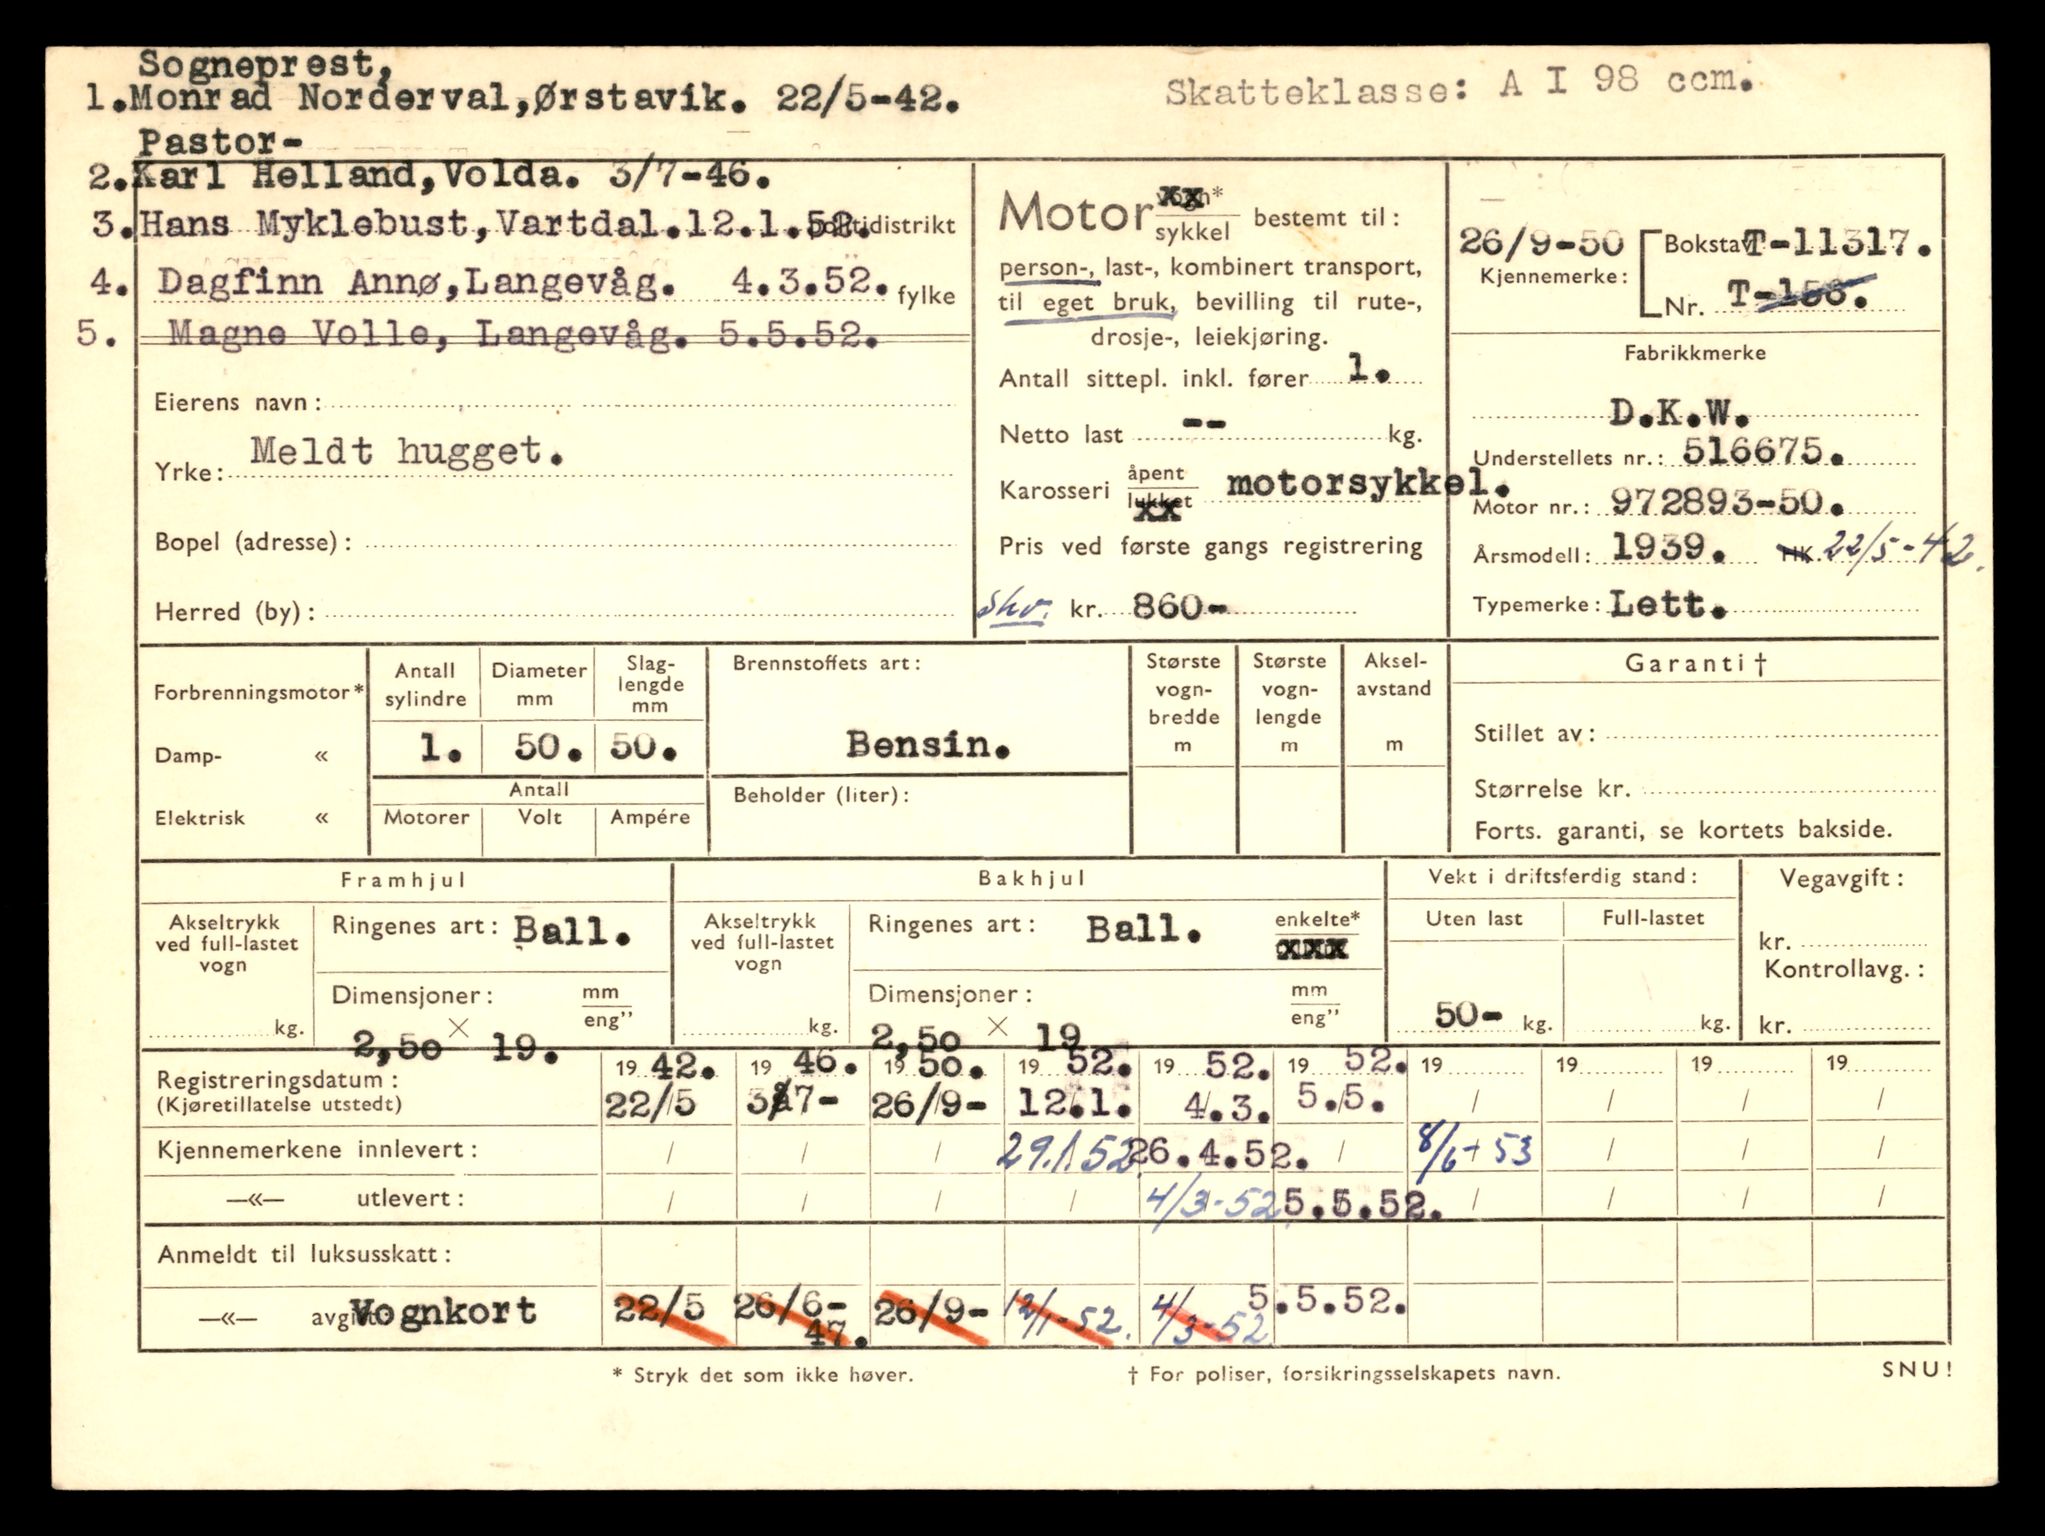 Sogneprest,
1.Monrad Norderval,Ørstavik. 22/5-42.
Skatteklasse: A I 98 ccm.
Pastor-
2.Karl Helland,Volda. 3/7-46.
3.Hans Myklebust,Vartdal.12.1.52. politidistrikt
4. Dagfinn Annø,Langevåg. 4.3.52. fylke
5. Magne Volle, Langevåg. 5.5.52.
Eierens navn:
Meldt hugget.
Yrke:
Bopel (adresse):
Herred (by):
Motor vogn*
sykkel bestemt til:
person-, last-, kombinert transport,
til eget bruk, bevilling til rute-,
drosje-, leiekjøring.
Antall sittepl. inkl. fører 1.
Netto last -- kg.
Karosseri åpent
lukket motorsykkel.
Pris ved første gangs registrering
skv. kr. 860-
26/9-50 Bokstav T-11317.
Kjennemerke:
Nr. T-156.
Fabrikkmerke
D.K.W.
Understellets nr.: 516675.
Motor nr.: 972893-50.
Årsmodell: 1939. HK. 22/5-42.
Typemerke: Lett.
Forbrenningsmotor*
Damp- «
Elektrisk «
Antall sylindre Diameter mm Slag-lengde mm
1. 50. 50.
Antall
Motorer Volt Ampére
Brennstoffets art:
Bensin.
Beholder (liter):
Største vogn-bredde m
Største vogn-lengde m
Aksel-avstand m
Garanti†
Stillet av:
Størrelse kr.
Forts. garanti, se kortets bakside.
Framhjul
Akseltrykk ved full-lastet vogn
kg.
Ringenes art: Ball.
Dimensjoner: mm
eng”
2,50 × 19.
Bakhjul
Akseltrykk ved full-lastet vogn
kg.
Ringenes art: Ball. enkelte*
xxx
Dimensjoner: mm
eng”
2,50 × 19
Vekt i driftsferdig stand:
Uten last Full-lastet
50- kg. kg.
Vegavgift:
kr.
Kontrollavg.:
kr.
Registreringsdatum: 19 42. 19 46. 19 50. 19 52. 19 52. 19 52. 19 19 19 19
(Kjøretillatelse utstedt) 22/5 3/7- 26/9- 12.1. 4.3. 5.5. / / / /
Kjennemerkene innlevert: / / / 29.1.52. 26.4.52. / 8/6-53 / / /
—«— utlevert: / / / / 4/3-52 5.5.52. / / / /
Anmeldt til luksusskatt:
—«— avgift: Vognkort 22/5 26/6-47. 26/9- 12/1-52. 4/3-52. 5.5.52.
* Stryk det som ikke høver.
† For poliser, forsikringsselskapets navn.
SNU!